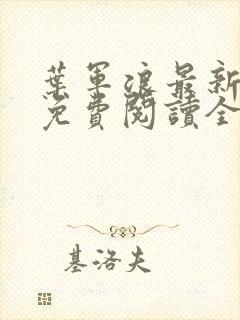 葉軍浪最新
免費閱讀全
基洛夫